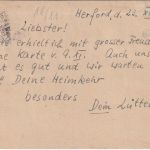 Herford, d. 22. XI
Liebster!
erhielt ich mit grosser Freud
e Karte v. 9. XI. Auch uns
t es gut und wir warten
Deine Heimkehr
besonders
Dein Lütte